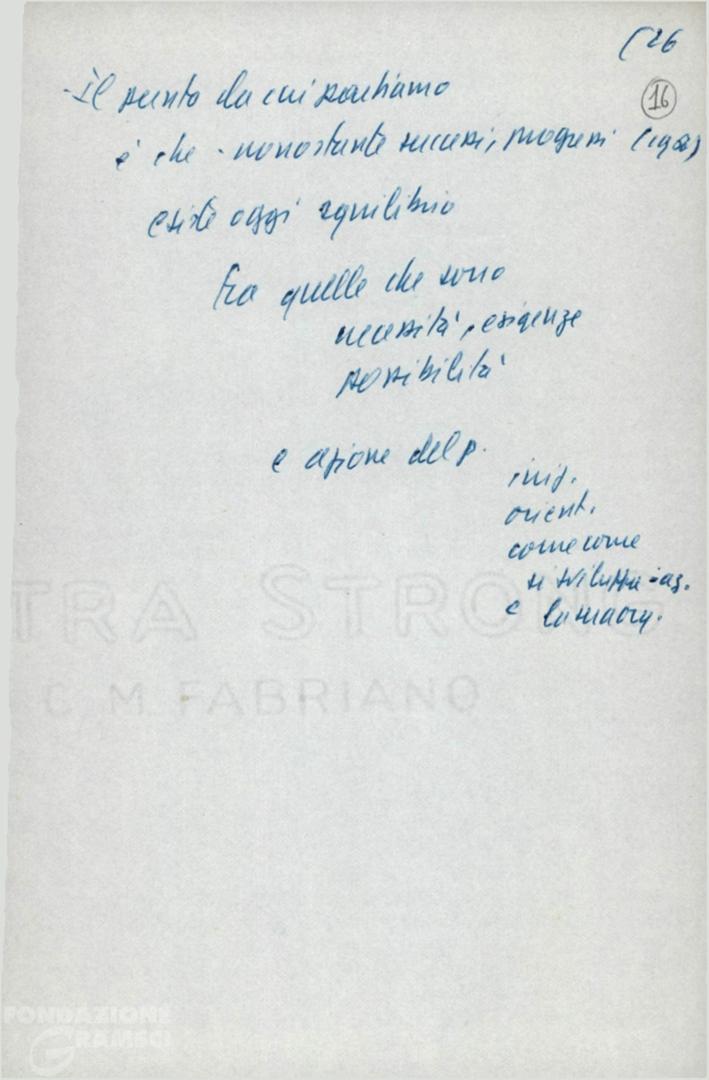 (26
16
- Il punto da cui partiamo
è che - nonostante successi, progressi
esiste oggi squilibrio
fra quelle che sono
necessità, esigenze
possibilità
e azione del p.
iniz.
orient.
come come
si sviluppa - az.
e la sua org.
TRA STRONG
C. M. FABRIANO
FONDAZIONE
GRAMSCI